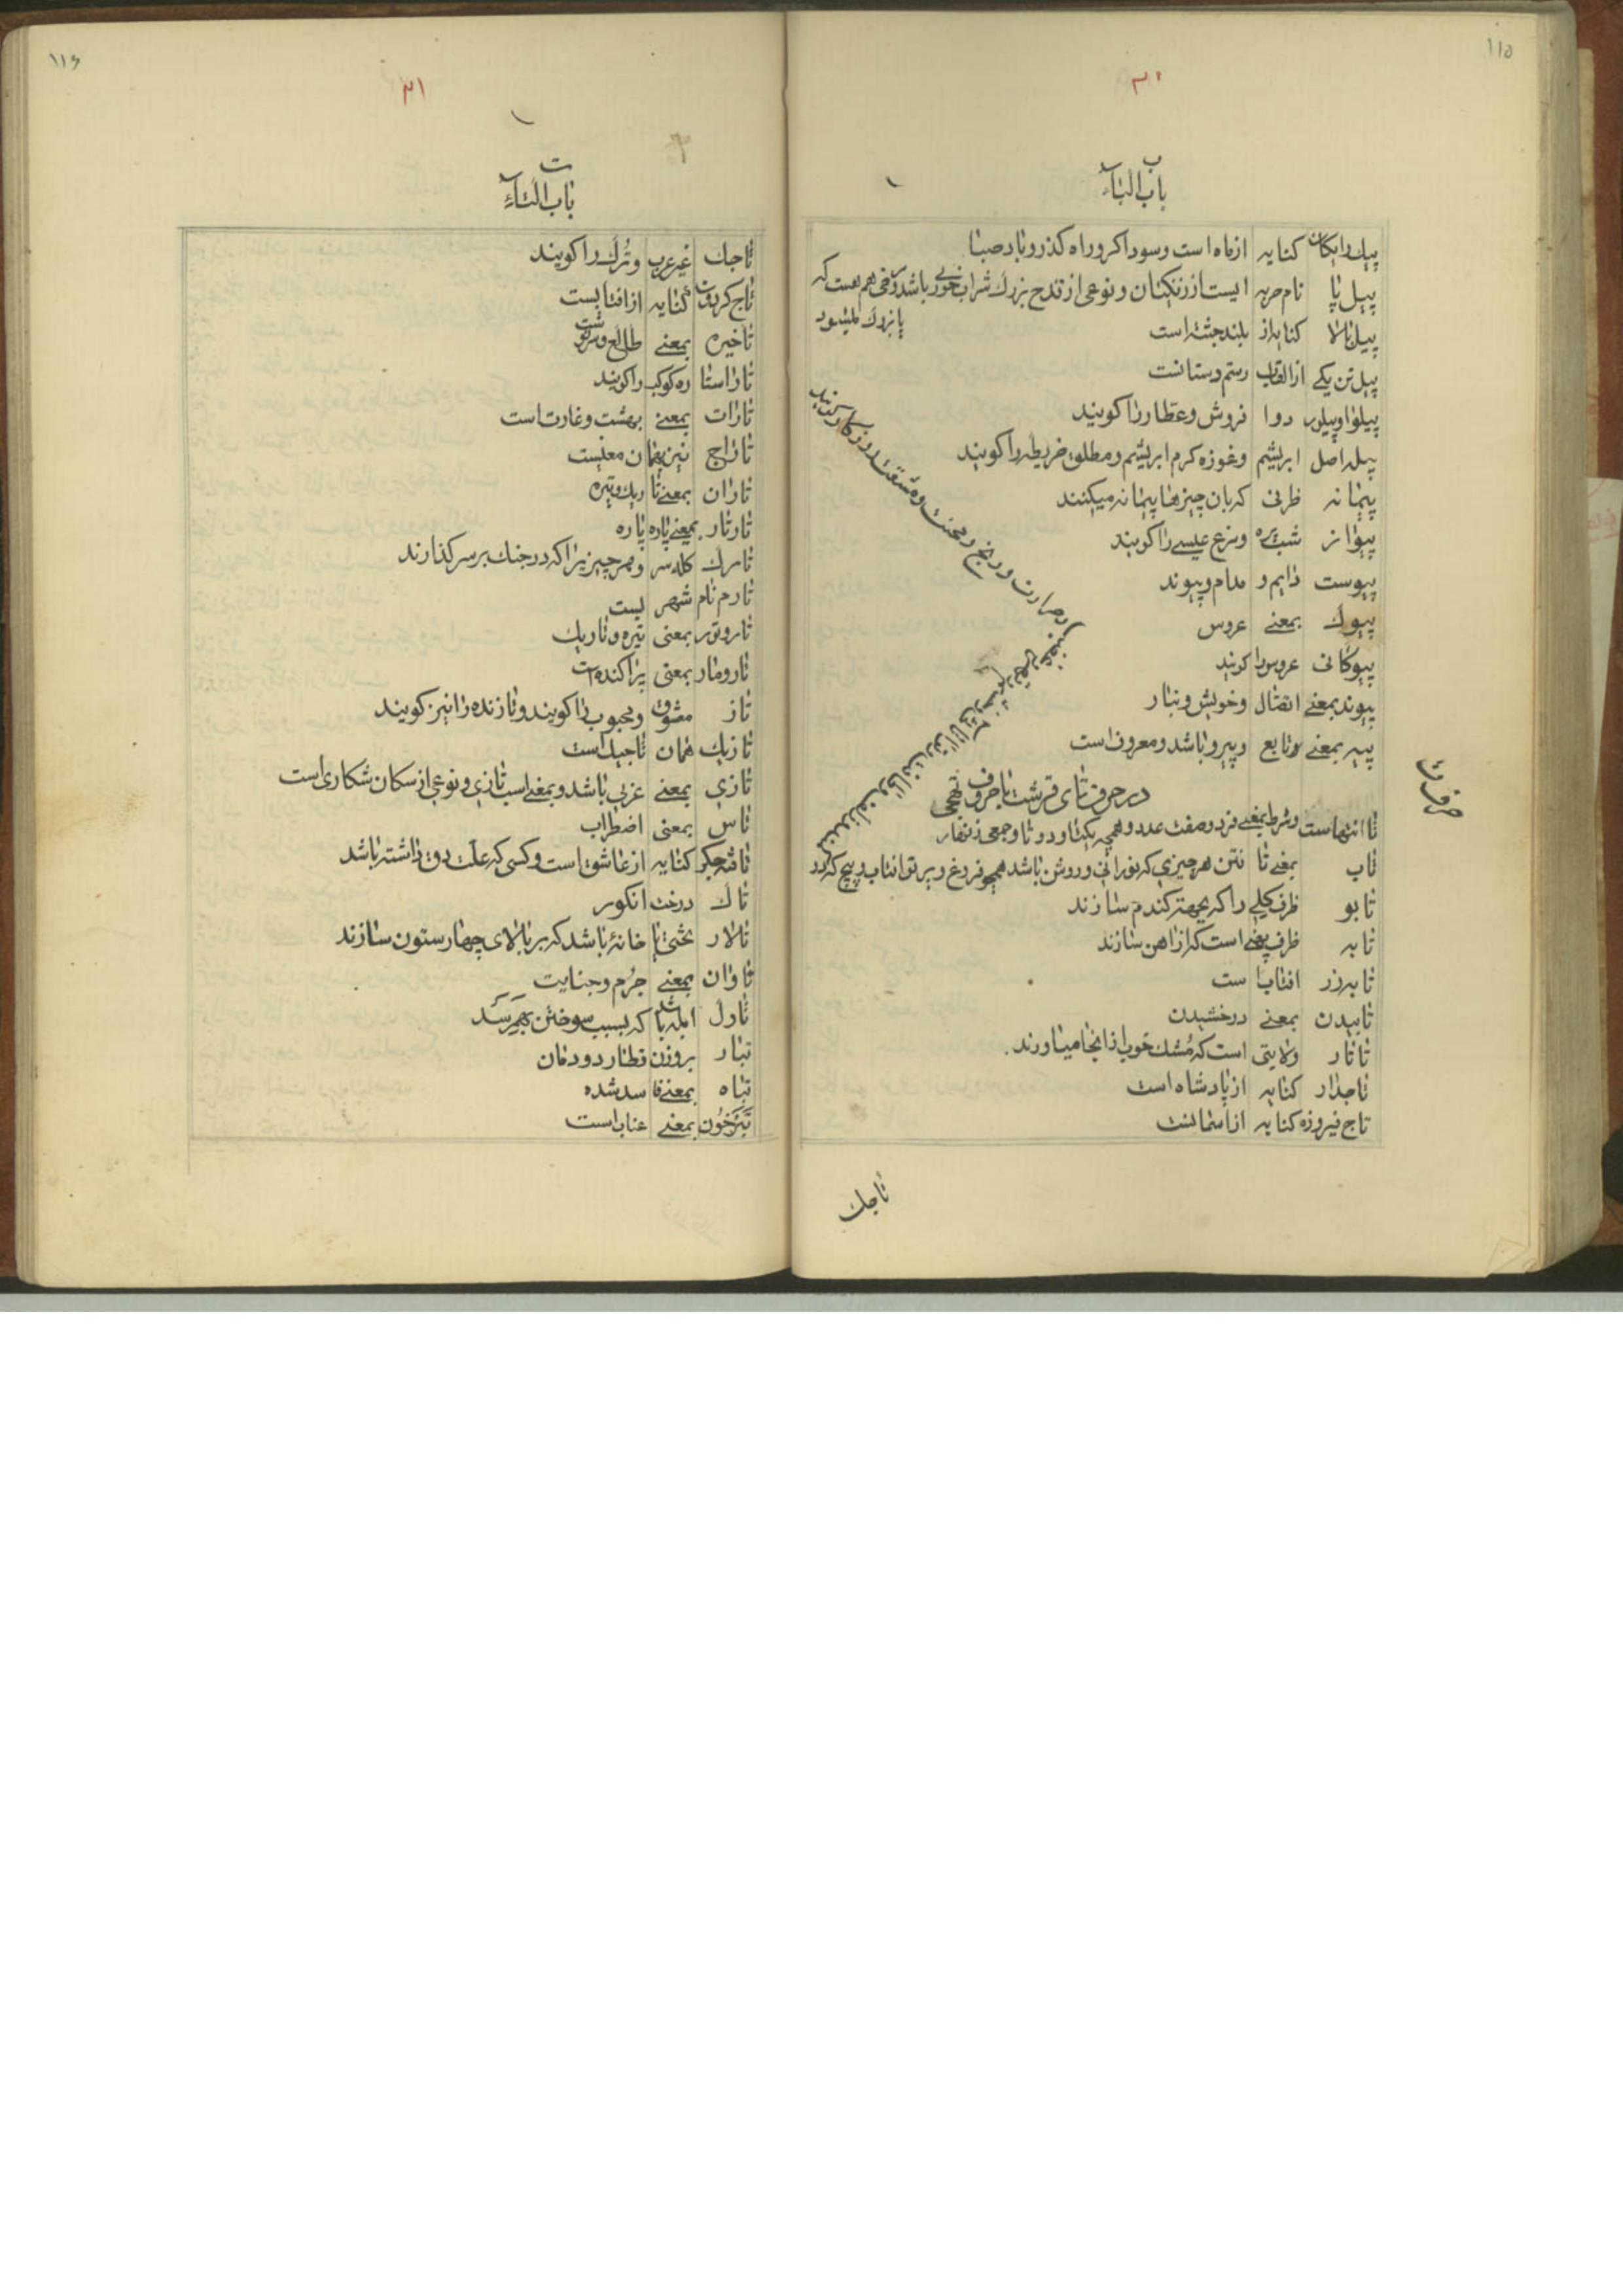 ۱۱۵
۳۰
ب
باب الباء
پیک رایگان کنایه از ماه است وسوداکر وراه کذر وباد صبا
پیل پا نام حربه ایست از زنکیان ونوعی از قدح بزرک شراب خوری باشد ومرضی هم هست که
پا بزرک میشود
پیل بالا کنایه از بلند جثه است
پیل تن یکی از القاب رستم دستانست
پیلوا وپیلور دوا فروش وعطار را کویند
پیله اصل ابریشم وغوزه کرم ابریشم ومطلق خریطه را کویند
پیمانه ظرفی که بان چیزها پیمانه میکنند
پیواز شب پره ومرغ عیسی را کویند
پیوست دایم و مدام وپیوند
پیوک بمعنی عروس
پیوکانی عروسی را کویند
پیوند بمعنی اتصال وخویش وتبار
پیر بمعنی وتابع وپیرو باشد ومعروف است
حرف ت
در حرف تای قرشت با حروف تهجی
تا انتهاست وشرط بمعنی فرد وصفت عدد وهمچه یکتا ودو تا وجمعی زنهار
تاب بمعنی تا فتن هر چیزی که نورانی وروشن باشد همچو فروغ وپرتو افتاب وپیچ که در
ورنج ومحنت ومشقت
تابو ظرف کلی را که بجهة کندم سازند
تابه ظرف پهنی است که از اهن سازند
تابه زر افتاب است
تابیدن بمعنی درخشیدن
تاتار ولایتی است که مُشک خوب از انجا میاورند
تاجدار کنایه از پادشاه است
تاج فیروزه کنایه از اسمانست
تاجک
۱۱۶
۳۱
ت
باب التاء
تاجک غیر عرب وتُرک را کویند
تاج کردون کنایه از افتابست
تاخیره بمعنی طالع وسرنوشت
تارا ستاره کوکب را کویند
تارات بمعنی بهشت وغارت است
تاراج نیز بهمان معنیست
تاران بمعنی تاریک وتیره
تارتار بمعنی پاره پاره
تارک کله سر وهر چیزی را که در جنک بر سر کذارند
تارم نام شهریست
تاروتور بمعنی تیره وتاریک
تارومار بمعنی پراکنده است
تاز معشوق ومحبوب را کویند وتازنده را نیز کویند
تازیک همان تاجیک است
تازی بمعنی عربی باشد وبمعنی اسب تازی ونوعی از سکان شکاری است
تاس بمعنی اضطراب
تافته جکر کنایه از عاشق است وکسی که علت دق داشته باشد
تاک درخت انکور
تالار تختی یا خانهٔ باشد که بر بالای چهار ستون سازند
تاوان بمعنی جرُم وجنایت
تاول ابله باشد که بسبب سوختن بهم رسد
تبار بروزن قطار دودمان
تباه بمعنی فاسد شده
تبرخون بمعنی عناب است